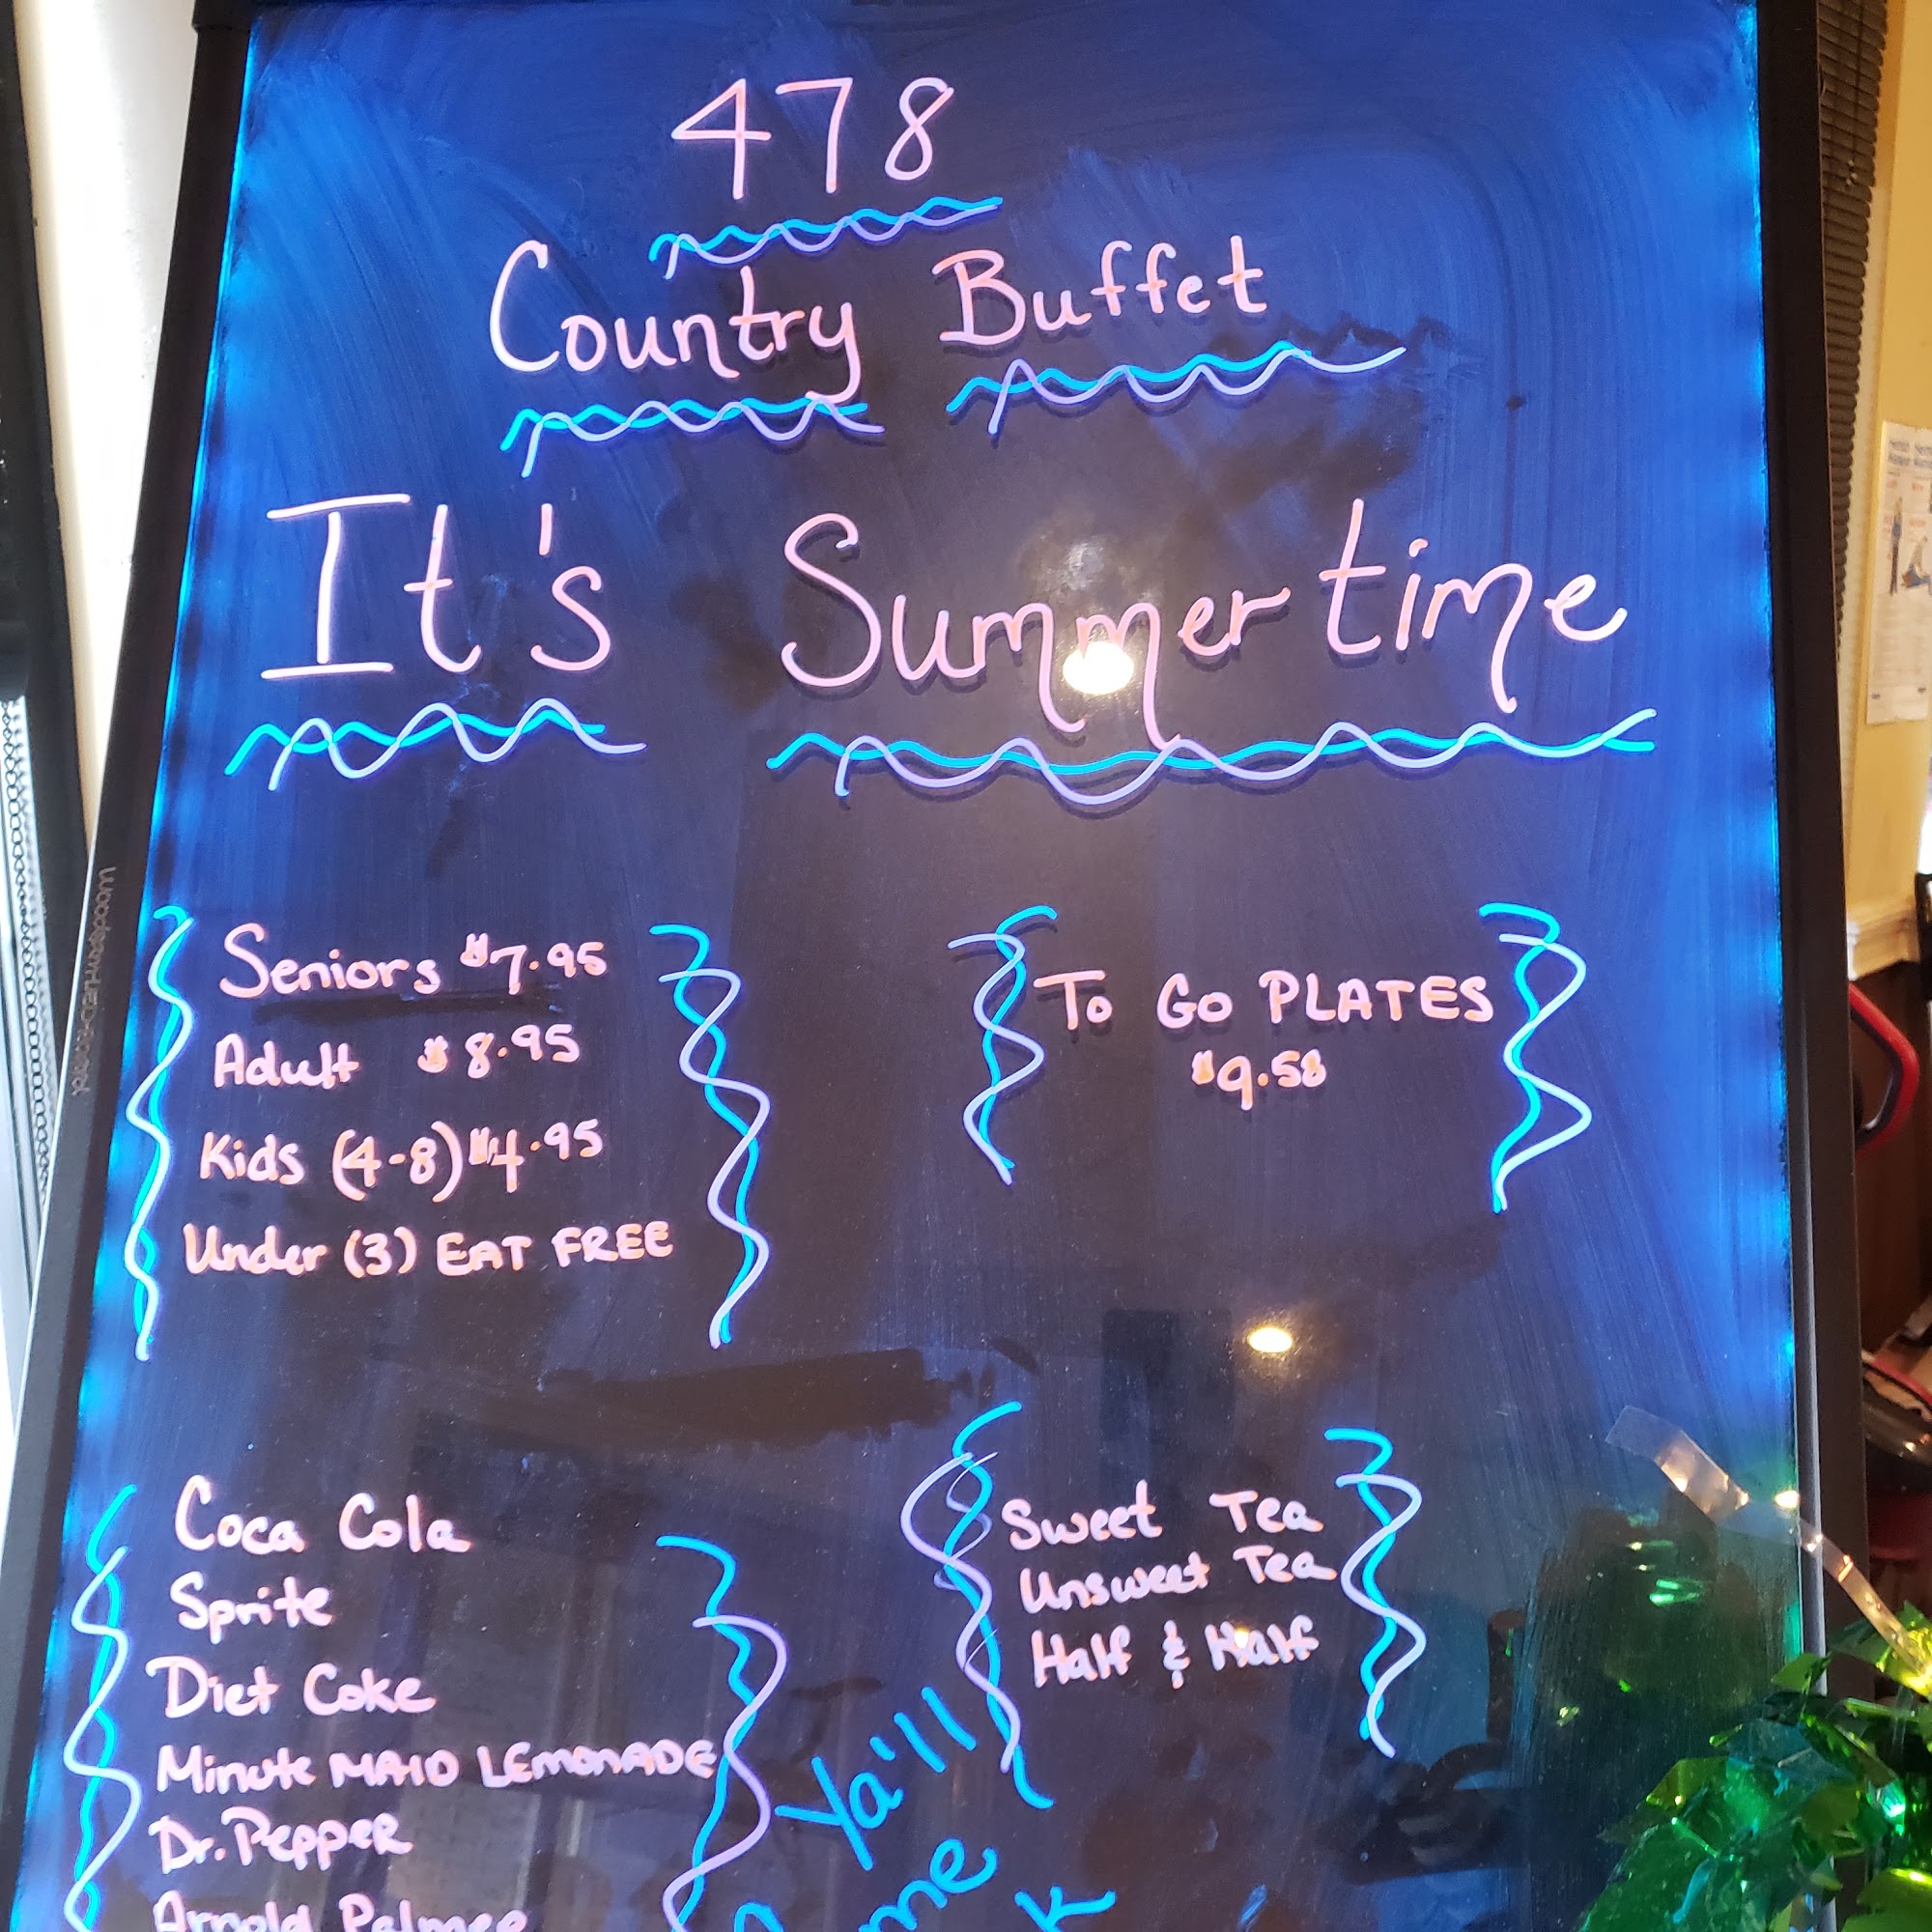 478
Country Buffet
It's Summertime
Seniors $7.95
Adult $8.95
Kids (4-8) $4.95
Under (3) EAT FREE
To Go PLATES
$9.58
Coca Cola
Sprite
Diet Coke
Minute MAID LEMONADE
Dr. Pepper
Arnold Palmer
Sweet Tea
Unsweet Tea
Half & Half
Ya'll